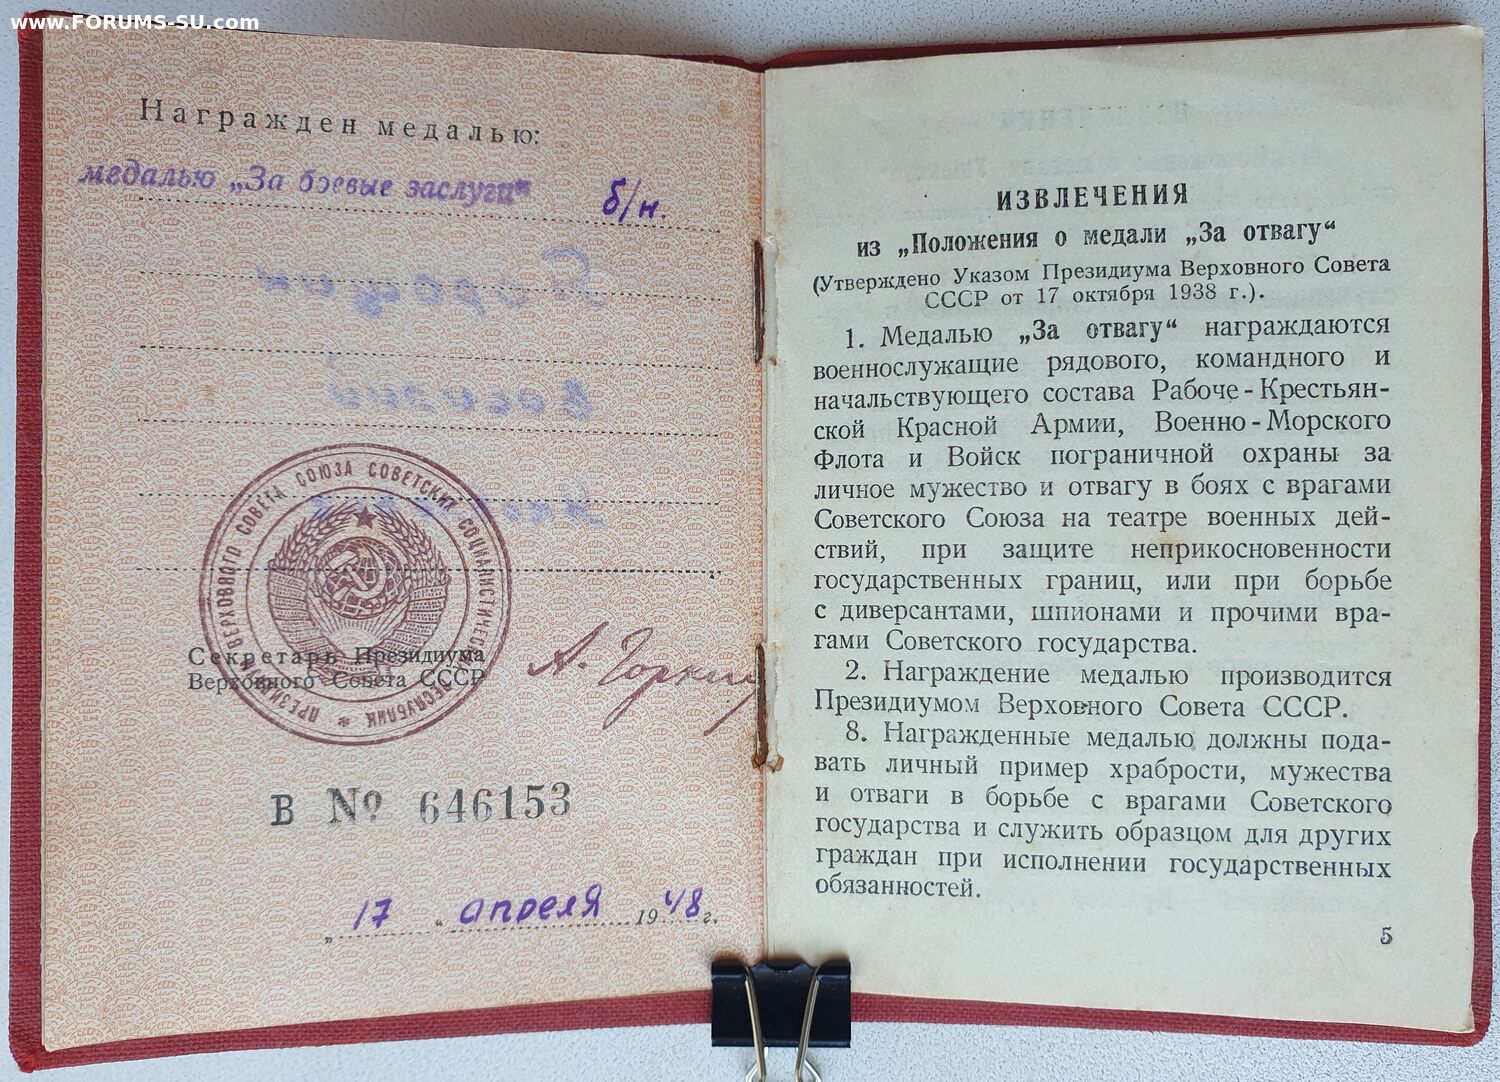 www.FORUMS-SU.com
Награжден медалью:
медалью „За боевые заслуги“ б/н.
ВЕРХОВНОГО СОВЕТА СОЮЗА СОВЕТСКИХ СОЦИАЛИСТИЧЕСКИХ РЕСПУБЛИК * ПРЕЗИДИУМ
Секретарь Президиума
Верховного Совета СССР
А. Горкин
В № 646153
„ 17 “ апреля 1948 г.
ИЗВЛЕЧЕНИЯ
из „Положения о медали „За отвагу“
(Утверждено Указом Президиума Верховного Совета
СССР от 17 октября 1938 г.).
1. Медалью „За отвагу“ награждаются
военнослужащие рядового, командного и
начальствующего состава Рабоче-Крестьян-
ской Красной Армии, Военно-Морского
Флота и Войск пограничной охраны за
личное мужество и отвагу в боях с врагами
Советского Союза на театре военных дей-
ствий, при защите неприкосновенности
государственных границ, или при борьбе
с диверсантами, шпионами и прочими вра-
гами Советского государства.
2. Награждение медалью производится
Президиумом Верховного Совета СССР.
8. Награжденные медалью должны пода-
вать личный пример храбрости, мужества
и отваги в борьбе с врагами Советского
государства и служить образцом для других
граждан при исполнении государственных
обязанностей.
5